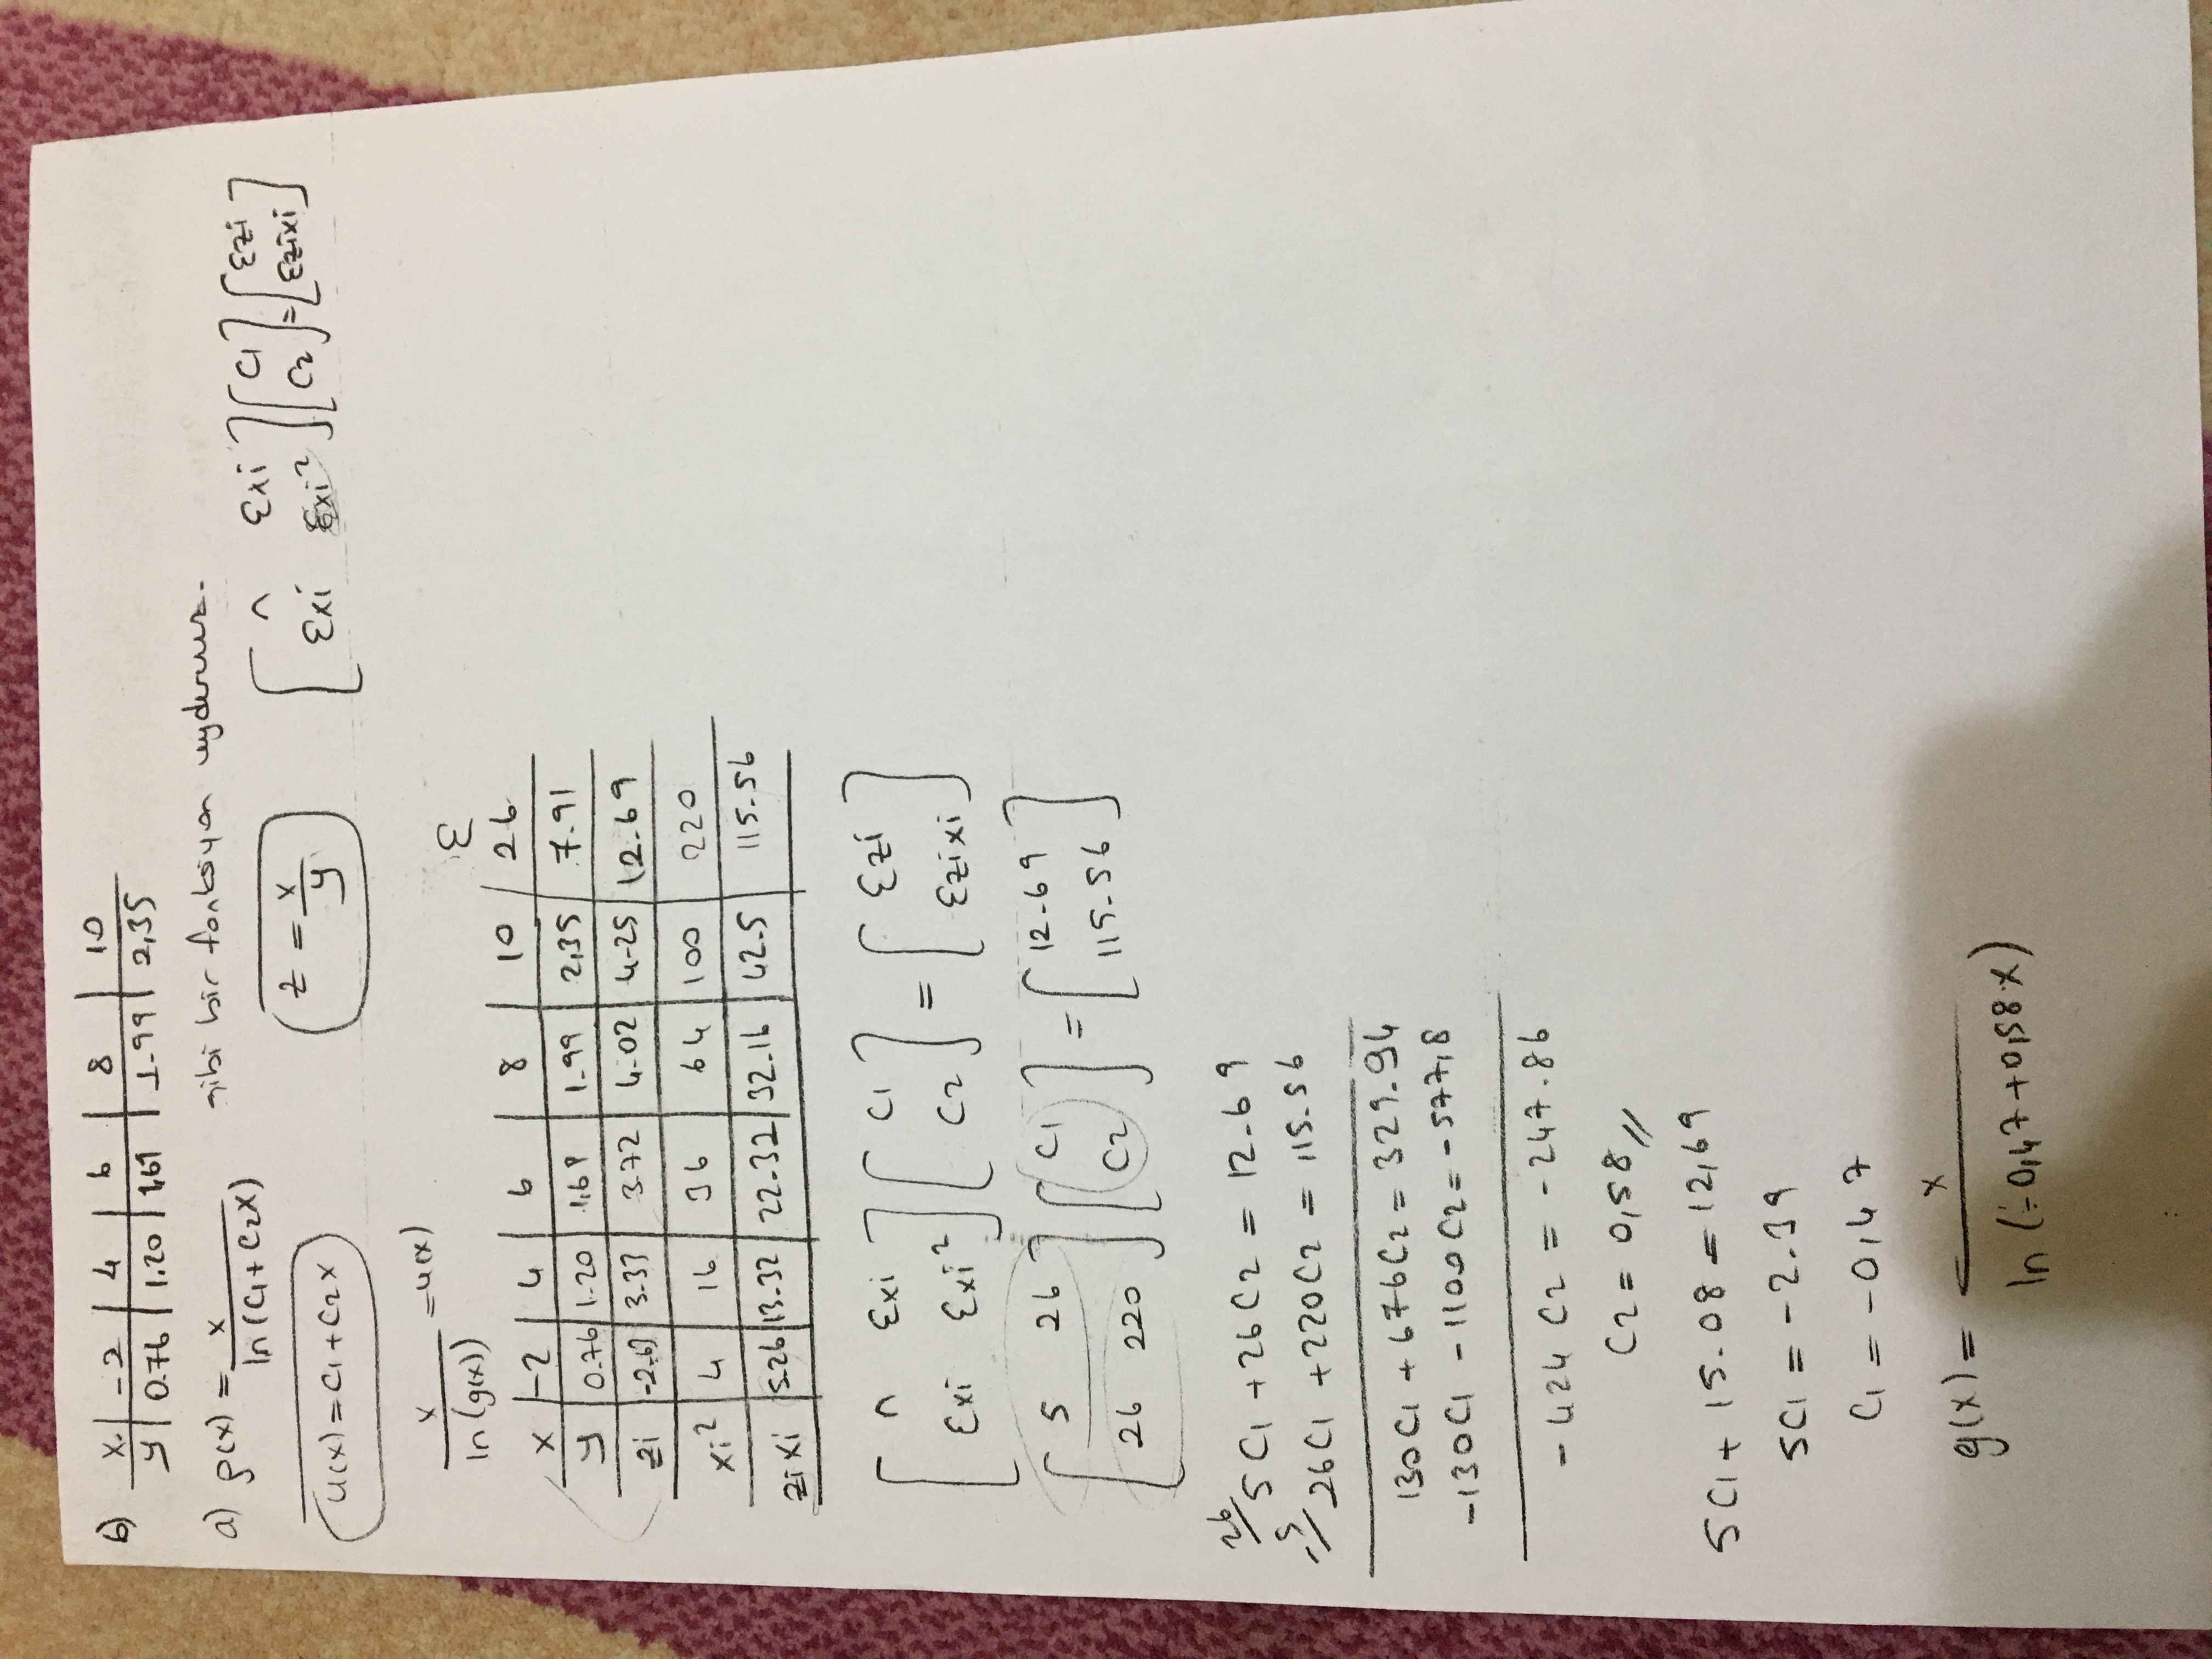 6) x | -2 | 4 | 6 | 8 | 10
y | 0.76 | 1.20 | 1,61 | 1.99 | 2,35
a) g(x) = x / ln(c1+c2x) gibi bir fonksiyon uydurunuz.
u(x) = c1+c2x
z = x / y
[ n Ɛxi ; Ɛxi Ɛxi² ] [ c1 ; c2 ] = [ Ɛzi ; Ɛzixi ]
x / ln(g(x)) = u(x)
Ɛ
x | -2 | 4 | 6 | 8 | 10 | 26
y | 0.76 | 1.20 | 1,61 | 1.99 | 2,35 | 7.91
zi | -2.63 | 3.33 | 3.72 | 4.02 | 4.25 | 12.69
xi² | 4 | 16 | 36 | 64 | 100 | 220
zixi | 5.26 | 13.32 | 22.32 | 32.16 | 42.5 | 115.56
[ n Ɛxi ; Ɛxi Ɛxi² ] [ c1 ; c2 ] = [ Ɛzi ; Ɛzixi ]
[ 5 26 ; 26 220 ] [ c1 ; c2 ] = [ 12.69 ; 115.56 ]
26/ 5c1 + 26c2 = 12.69
-5/ 26c1 + 220c2 = 115.56
130c1 + 676c2 = 329.94
-130c1 - 1100c2 = -577,8
-424 c2 = -247.86
c2 = 0,58 //
5c1 + 15.08 = 12,69
5c1 = -2.39
c1 = -0,47
g(x) = x / ln(-0,47+0,58x)